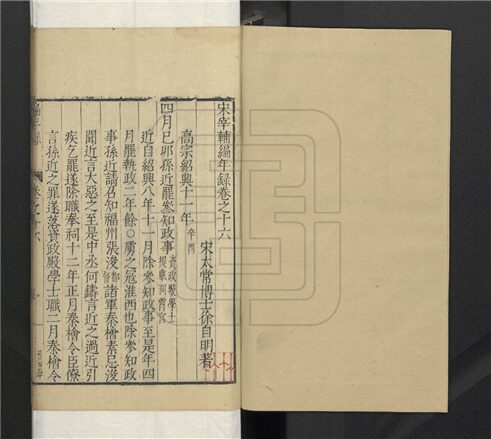 宋宰輔編年錄卷之十六
宋太常博士徐自明著
高宗紹興十一年辛酉
四月己卯孫近罷參知政事
近自紹興八年十一月除參知政事至是年四
月罷執政二年餘○虜之冦淮西也除參知政
事孫近請召知福州張浚都督諸軍秦檜素忌浚
聞近言大惡之至是中丞何鑄言近之過近引
疾久罷遂除職奉祠十二年正月秦檜令臣僚
言孫近之罪遂落資政殿學士職二月秦檜令
編年錄 卷之十六